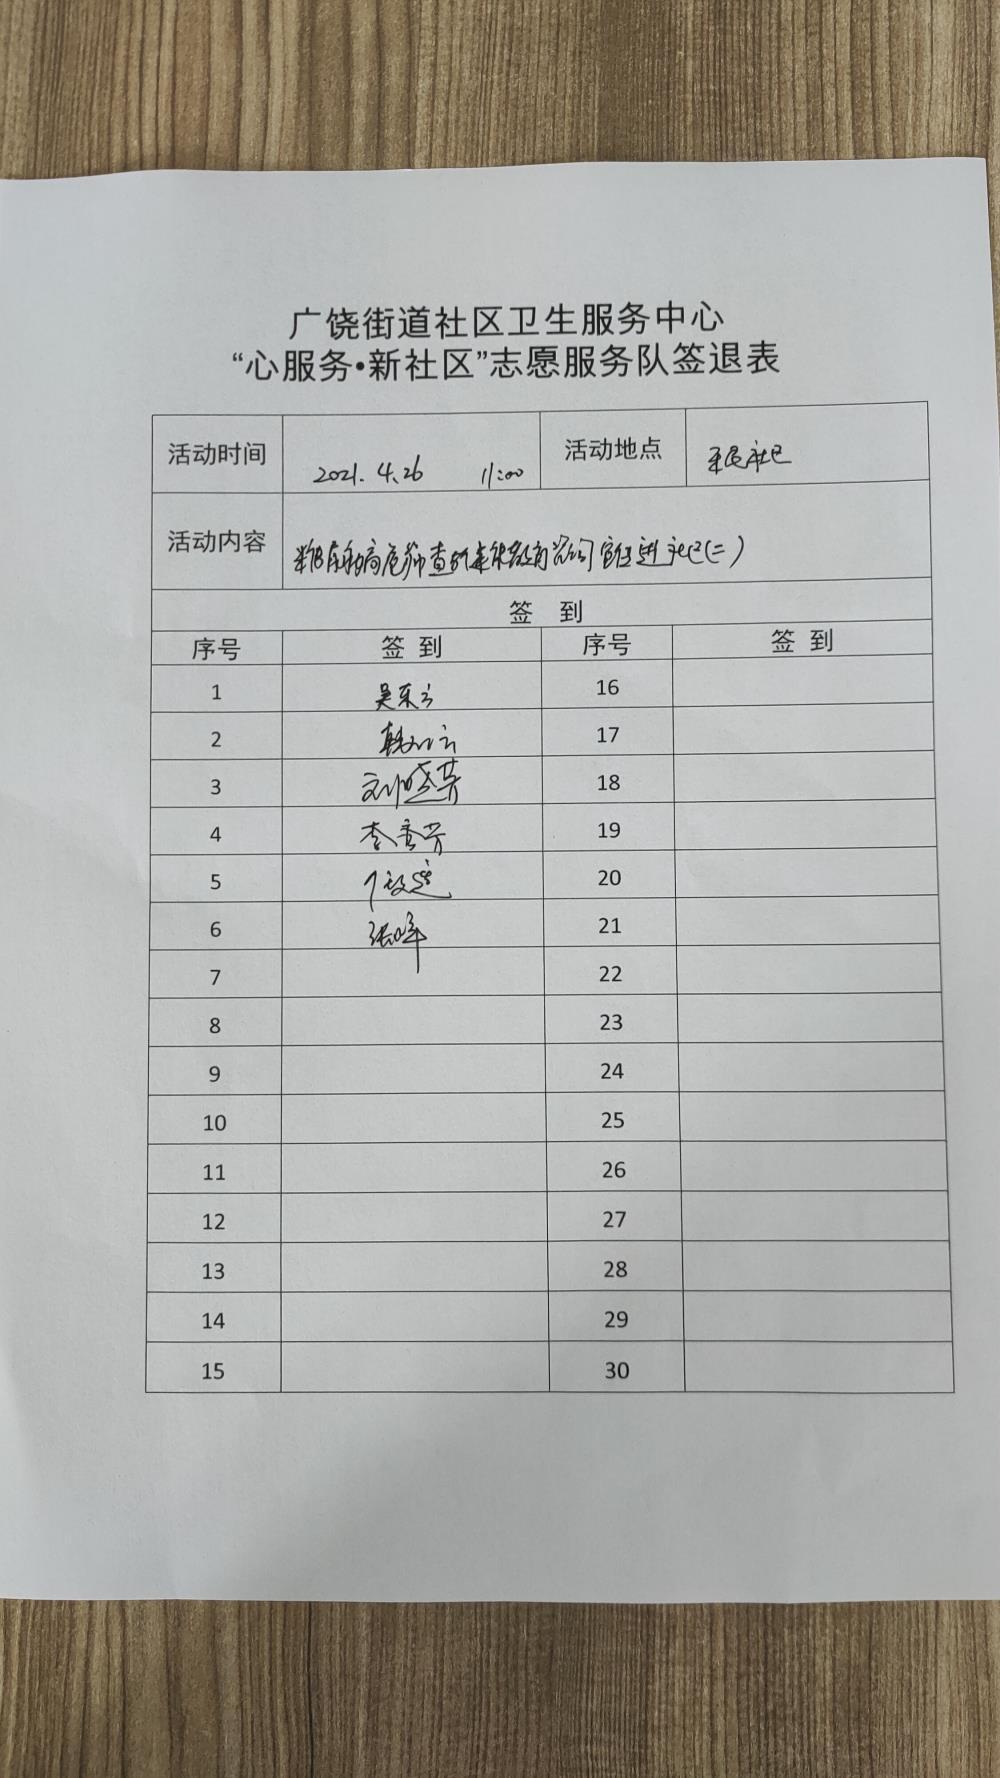 广饶街道社区卫生服务中心
“心服务•新社区”志愿服务队签退表
活动时间 2021.4.26 11:00 活动地点
活动内容 高危筛查 进社区(二)
签 到
序号 签到 序号 签到
1 吴东云 16
2 韩 云 17
3 刘晓芳 18
4 李秀芳 19
5 20
6 张峰 21
7 22
8 23
9 24
10 25
11 26
12 27
13 28
14 29
15 30